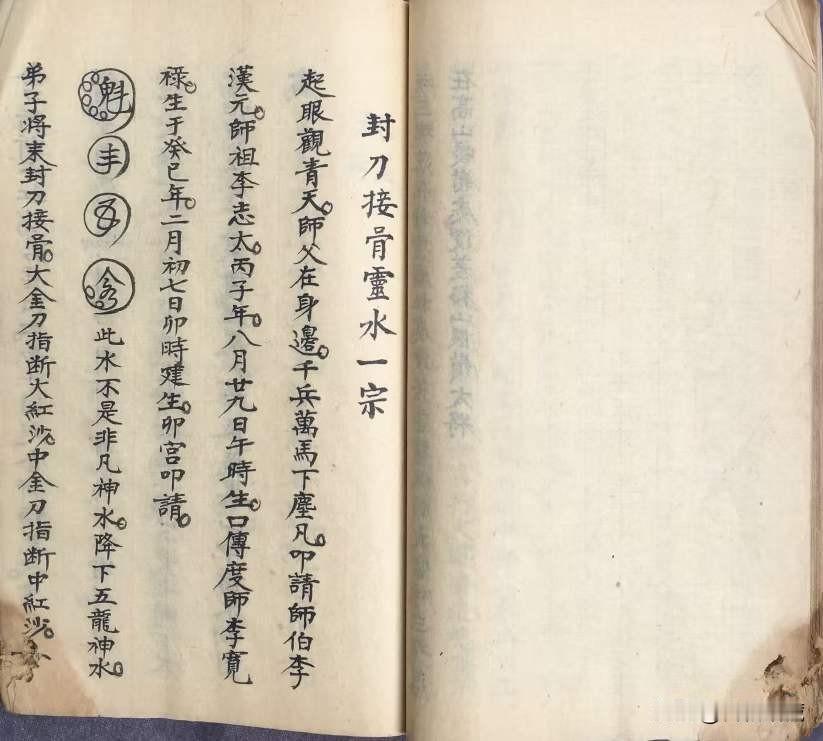 封刀接骨靈水一宗
起眼觀青天。師父在身邊。千兵萬馬下塵凡。叩請師伯李
漢元。師祖李志太。丙子年。八月廿九日午時生。口傳度師李寬
祿。生于癸巳年。二月初七日卯時建生。卯宮叩請。
魁 丰 此水不是非凡神水。降下五龍神水。
弟子將來封刀接骨。大金刀指断大紅沙。中金刀指断中紅沙。小